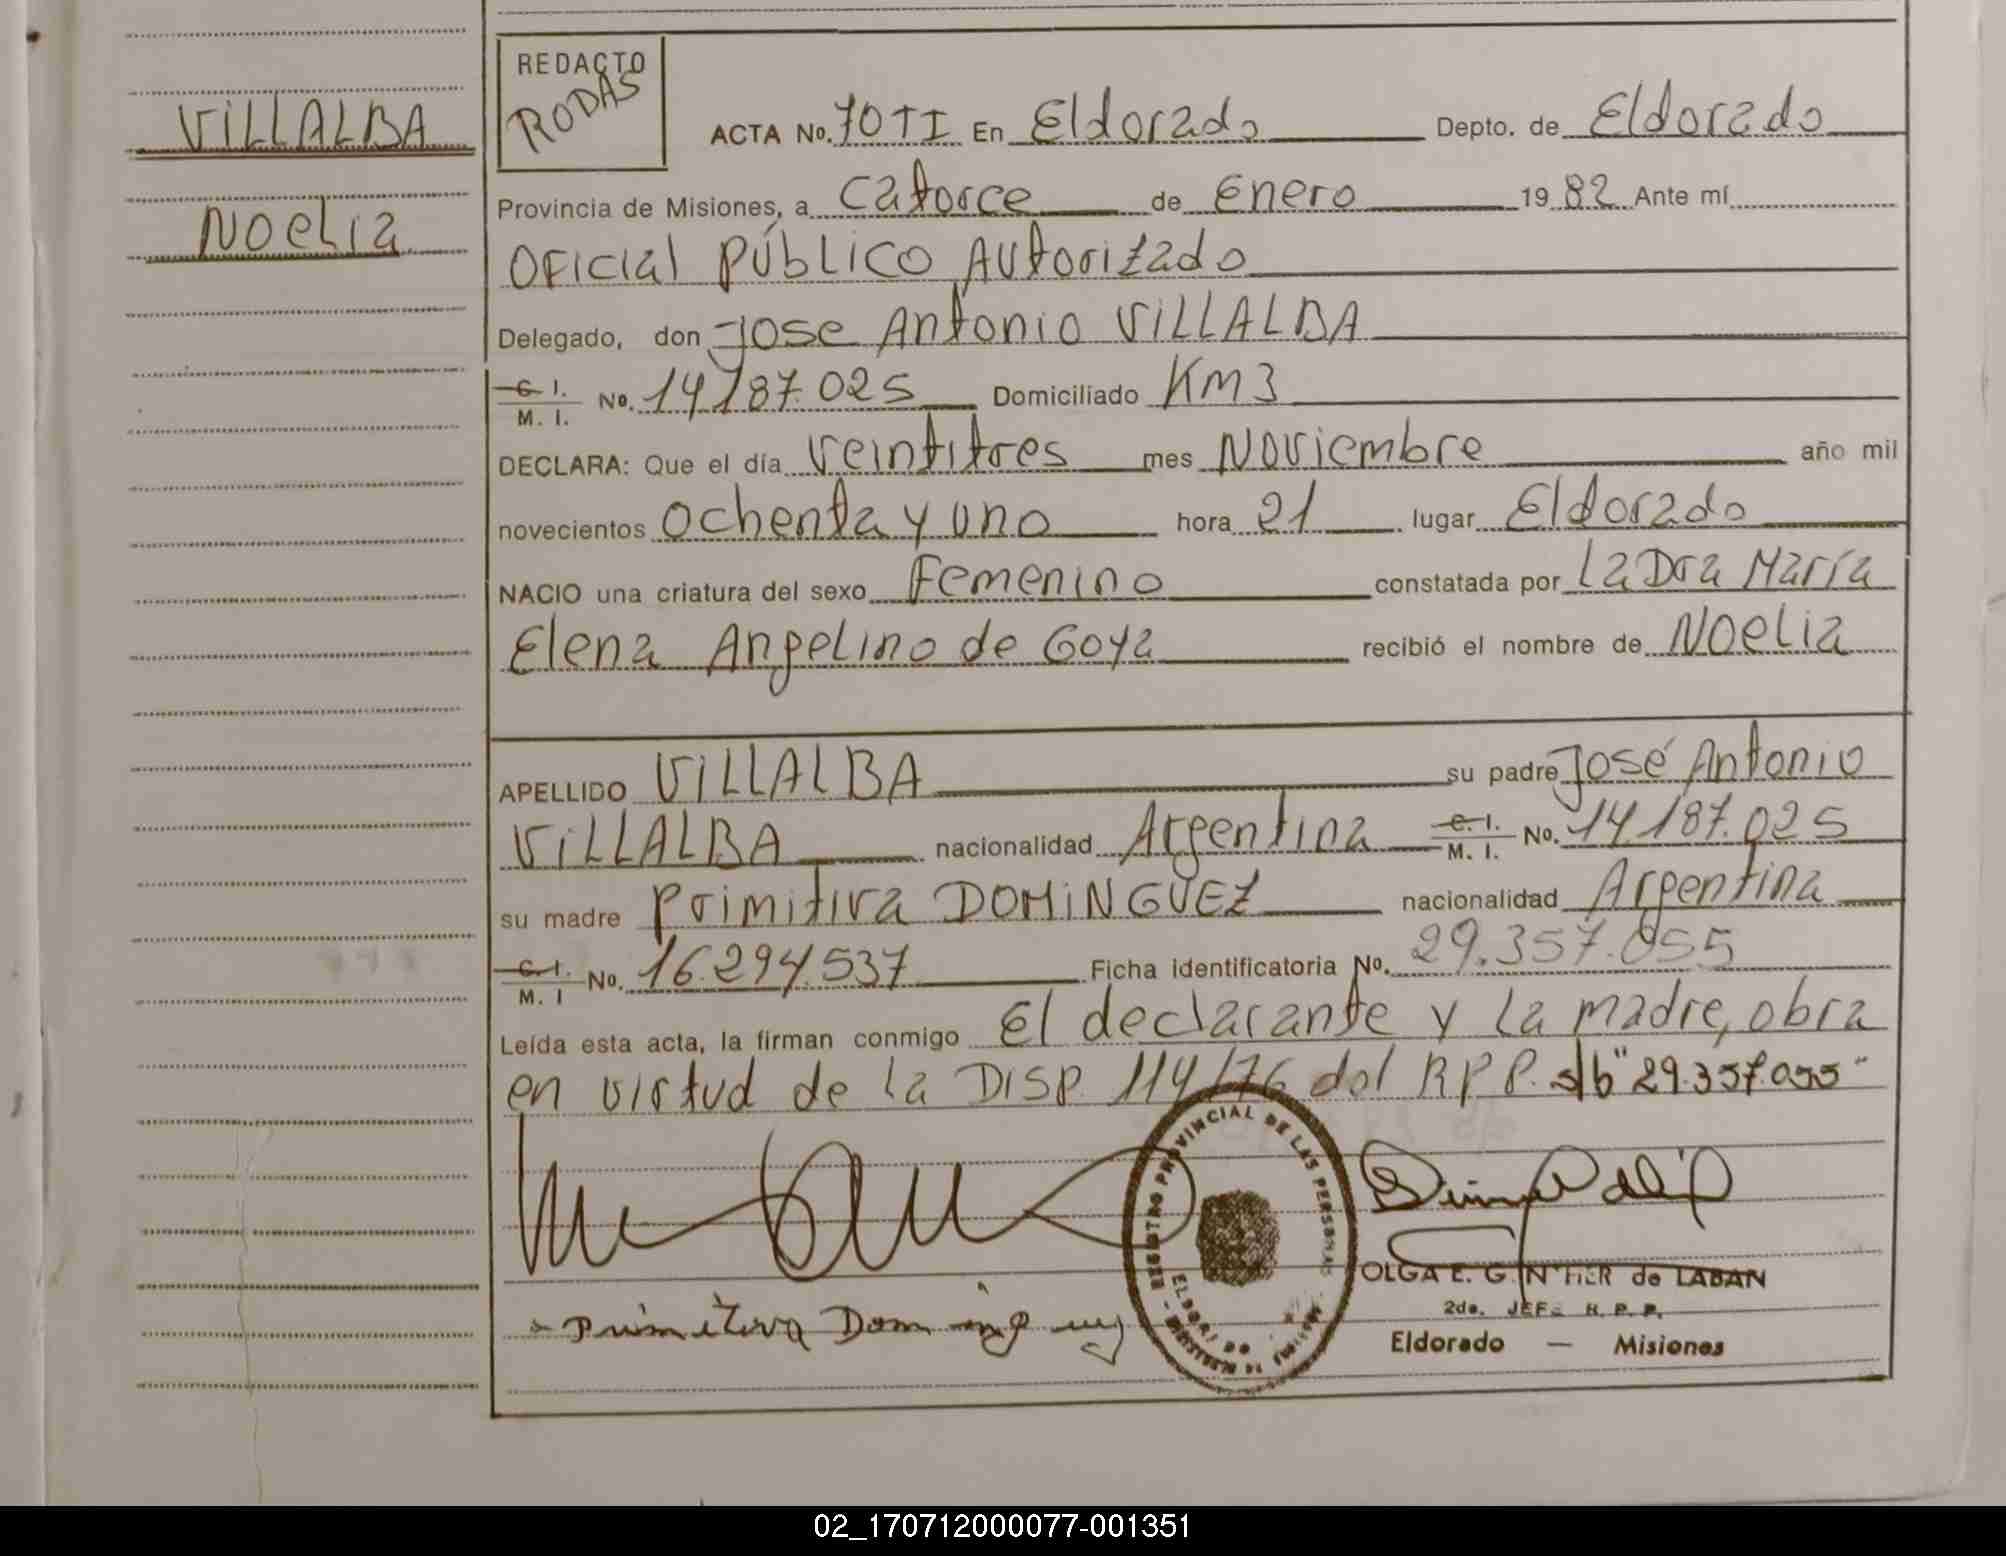 VILLALBA
Noelia
REDACTO
RODAS
ACTA No. 70 TI En Eldorado Depto. de Eldorado
Provincia de Misiones, a Catorce de Enero 1982 Ante mí
Oficial Público Autorizado
Delegado, don Jose Antonio VILLALBA
C. I. M. I. No. 14.187.025 Domiciliado Km 3
DECLARA: Que el día veintitres mes Noviembre año mil
novecientos ochenta y uno hora 21 lugar Eldorado
NACIO una criatura del sexo Femenino constatada por La Dra María
Elena Angelino de Goya recibió el nombre de Noelia
APELLIDO VILLALBA su padre José Antonio
VILLALBA nacionalidad Argentina C. I. M. I. No. 14.187.025
su madre Primitiva DOMINGUEZ nacionalidad Argentina
C. I. M. I No. 16.294.537 Ficha identificatoria No. 29.357.055
Leída esta acta, la firman conmigo El declarante y la madre, obra
en virtud de la DISP. 114/76 del R P P. s/b "29.357.055"
REGISTRO PROVINCIAL DE LAS PERSONAS
Primitiva Dominguez
OLGA E. GINTHER de LABAN
2do. JEFE R. P. P.
Eldorado — Misiones
02_170712000077-001351